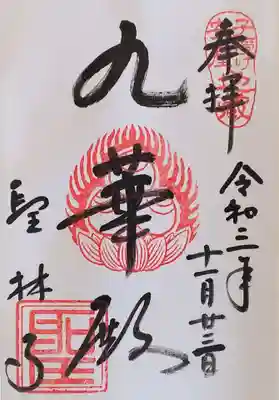 奉拝
令和三年
十一月廿三日
九華殿
聖林寺